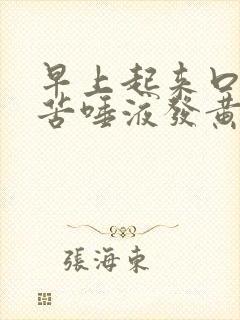 早上起来口
苦唾液發黄
張海東